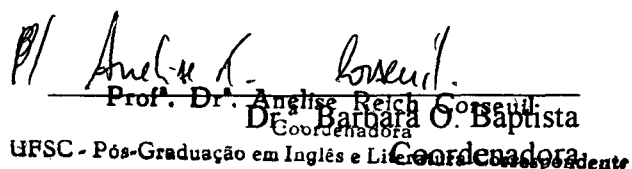 P/ Anelise R. Corseuil.
Profª. Drª. Anelise Reich Corseuil
Drª Barbara O. Baptista
Coordenadora
UFSC - Pós-Graduação em Inglês e Literatura Correspondente
Coordenadora